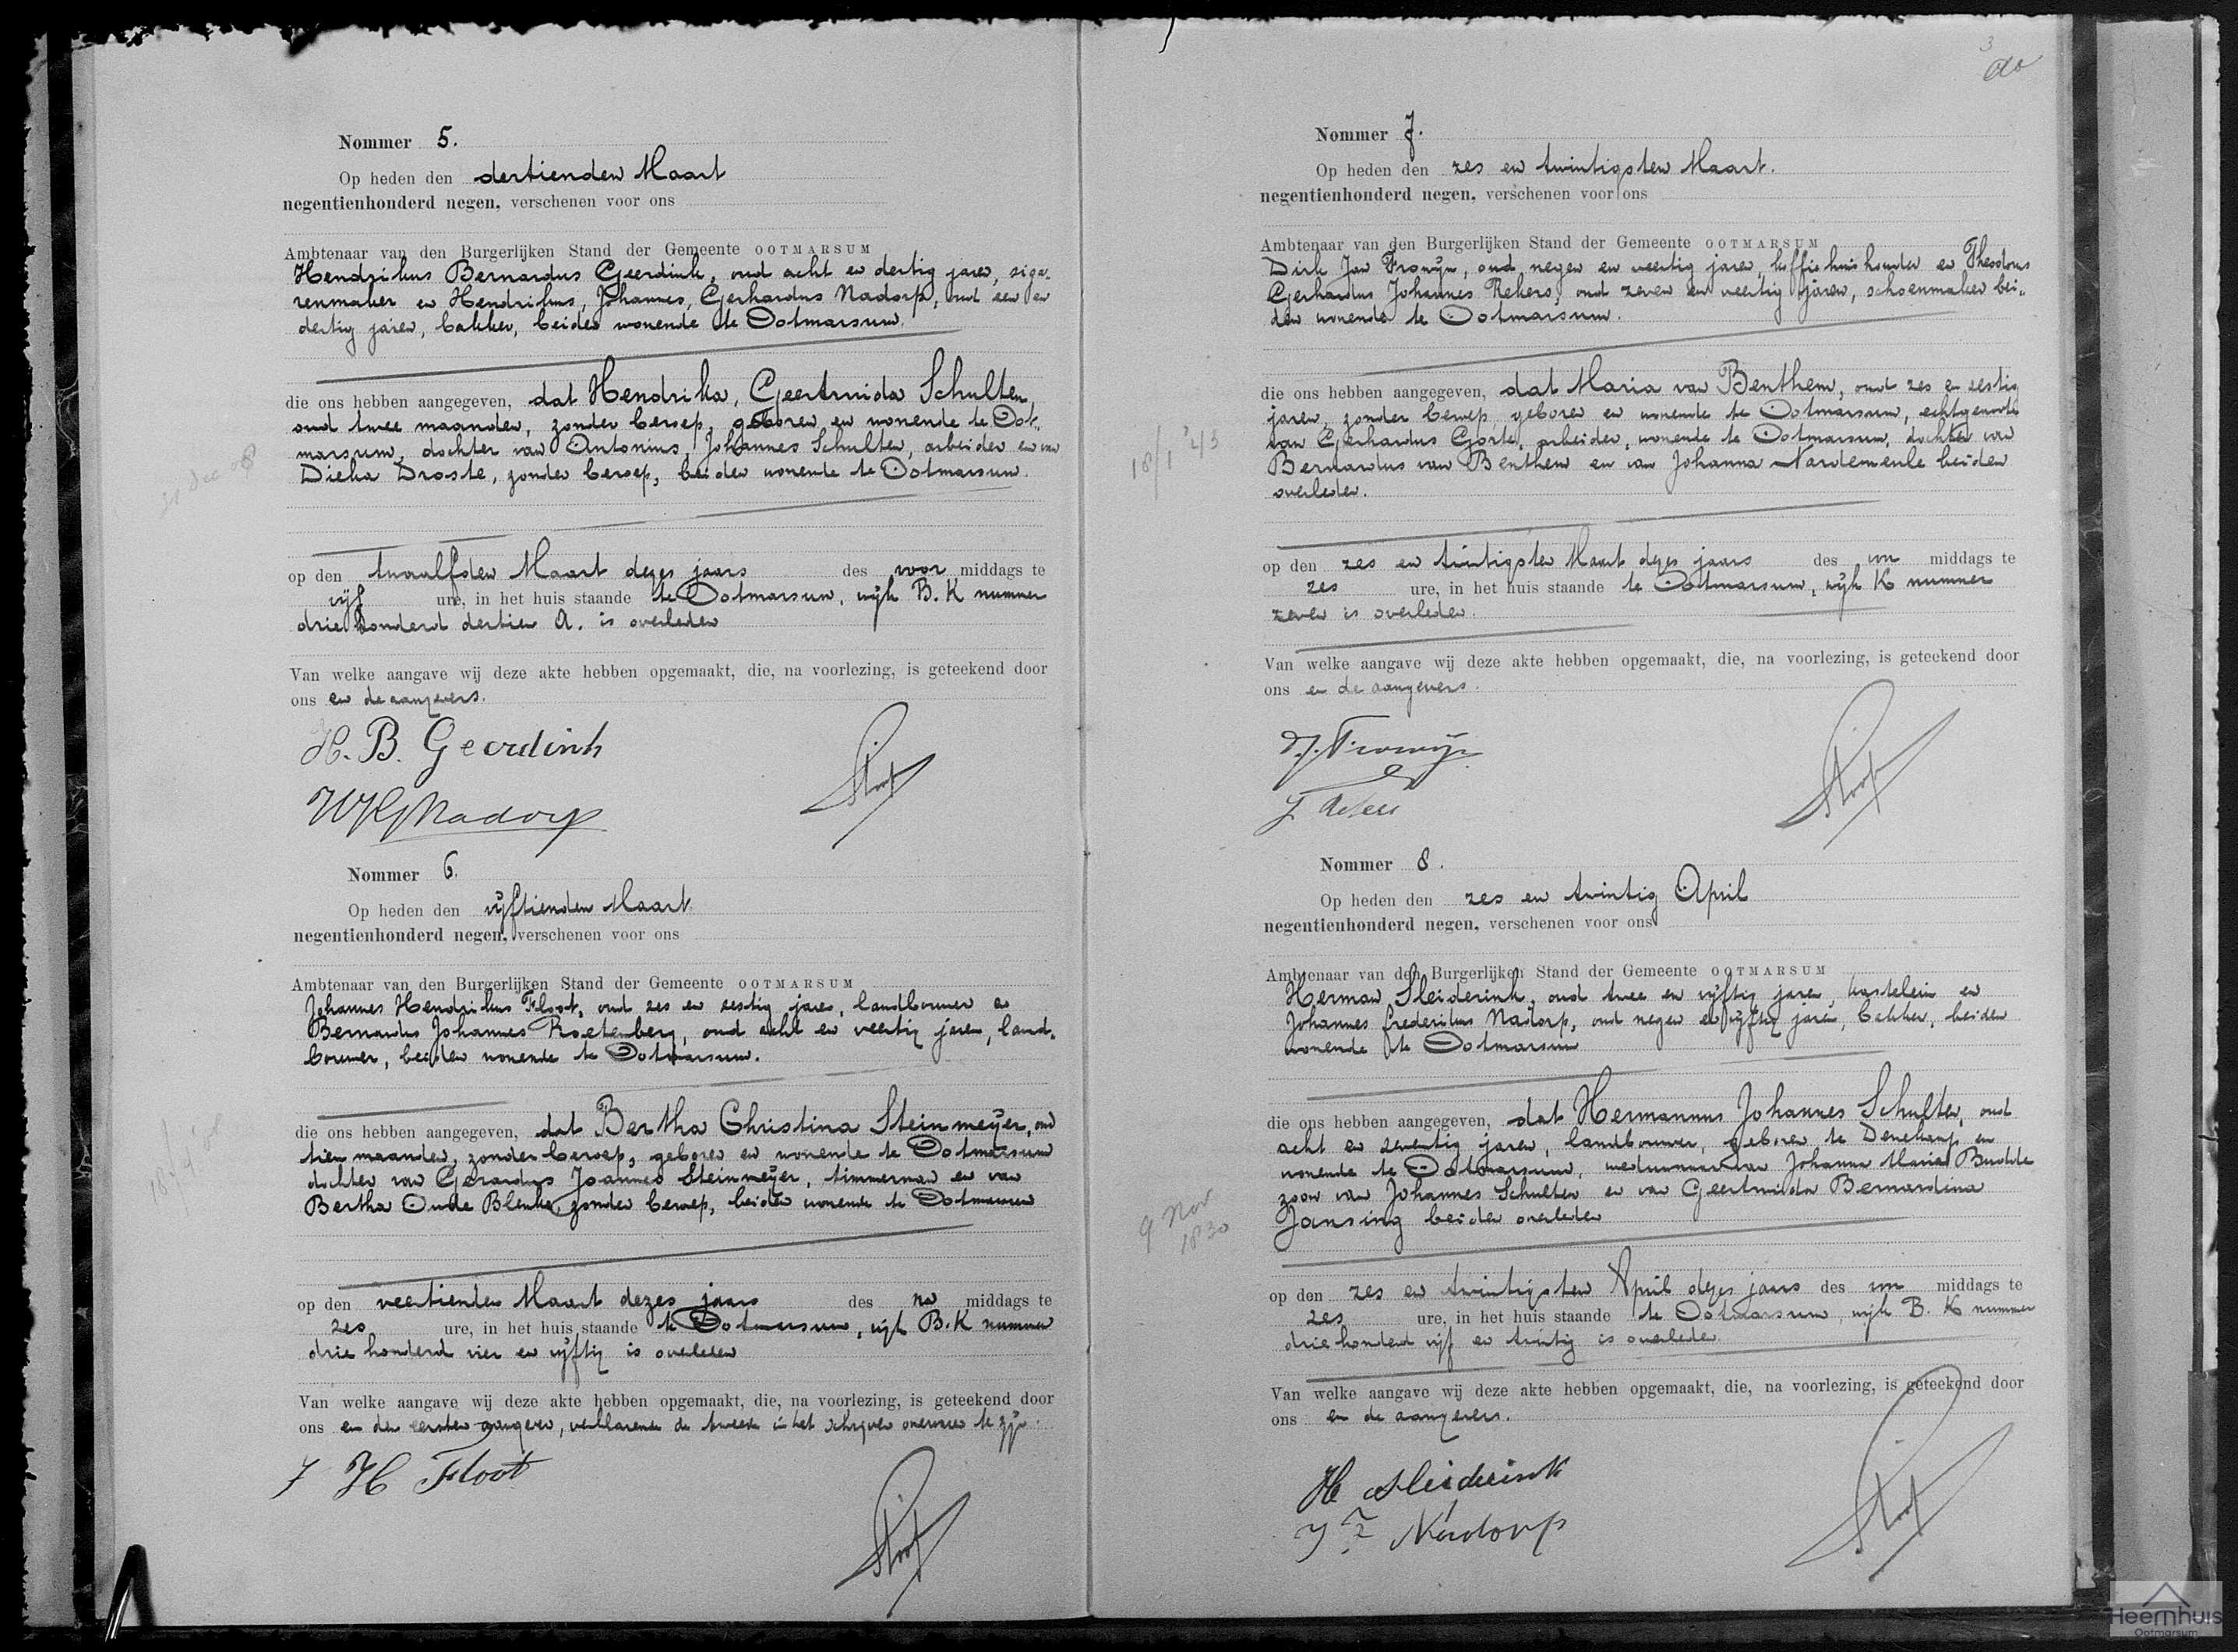 Nommer 5.
Op heden den dertienden Maart
negentienhonderd negen, verschenen voor ons
Ambtenaar van den Burgerlijken Stand der Gemeente OOTMARSUM
Hendrikus Bernardus Geerdink, oud acht en dertig jaren, siga-
renmaker en Hendrikus, Johannes, Gerhardus Nadorp, oud een en
dertig jaren, bakker, beiden wonende te Ootmarsum.
die ons hebben aangegeven, dat Hendrika, Geertruida Schulten,
oud twee maanden, zonder beroep, geboren en wonende te Oot-
marsum, dochter van Antonius, Johannes Schulten, arbeider en van
Dieka Droste, zonder beroep, beiden wonende te Ootmarsum.
31 Dec 08
op den twaalfden Maart dezes jaars des voor middags te
vijf ure, in het huis staande te Ootmarsum, wijk B. K nummer
driehonderd dertien A. is overleden
Van welke aangave wij deze akte hebben opgemaakt, die, na voorlezing, is geteekend door
ons en de aangevers.
H. B. Geerdink
Nadorp
Nommer 6.
Op heden den vijftienden Maart
negentienhonderd negen, verschenen voor ons
Ambtenaar van den Burgerlijken Stand der Gemeente OOTMARSUM
Johannes Hendrikus Floot, oud zes en zestig jaren, landbouwer en
Bernardus Johannes Roetenberg, oud acht en veertig jaren, land-
bouwer, beiden wonende te Ootmarsum.
die ons hebben aangegeven, dat Bertha Christina Steinmeijer, oud
tien maanden, zonder beroep, geboren en wonende te Ootmarsum
dochter van Gerardus Joannes Steinmeijer, timmerman en van
Bertha Oude Blenke, zonder beroep, beiden wonende te Ootmarsum
op den veertienden Maart dezes jaars des na middags te
zes ure, in het huis staande te Ootmarsum, wijk B. K nummer
drie honderd vier en vijftig is overleden
Van welke aangave wij deze akte hebben opgemaakt, die, na voorlezing, is geteekend door
ons en den eersten aangever, verklarende de tweede in het schrijven onervaren te zijn.
J H Floot
3
Nommer 7.
Op heden den zes en twintigsten Maart.
negentienhonderd negen, verschenen voor ons
Ambtenaar van den Burgerlijken Stand der Gemeente OOTMARSUM
Dirk Jan Fronijn, oud negen en veertig jaren, koffiehuishouder en Theodorus
Gerhardus Johannes Rekers, oud zeven en veertig jaren, schoenmaker bei-
den wonende te Ootmarsum.
die ons hebben aangegeven, dat Maria van Benthem, oud zes en zestig
jaren, zonder beroep, geboren en wonende te Ootmarsum, echtgenoote
van Gerhardus Gorte, arbeider, wonende te Ootmarsum, dochter van
Bernardus van Benthem en van Johanna Nardemeule beiden
overleden.
18/1 '43
op den zes en twintigsten Maart dezes jaars des voor middags te
zes ure, in het huis staande te Ootmarsum, wijk K nummer
zeven is overleden.
Van welke aangave wij deze akte hebben opgemaakt, die, na voorlezing, is geteekend door
ons en de aangevers.
Nommer 8.
Op heden den zes en twintig April
negentienhonderd negen, verschenen voor ons
Ambtenaar van den Burgerlijken Stand der Gemeente OOTMARSUM
Herman Sleiderink, oud twee en vijftig jaren, kastelein en
Johannes Frederikus Nadorp, oud negen en vijftig jaren, bakker, beiden
wonende te Ootmarsum
die ons hebben aangegeven, dat Hermannus Johannes Schulten, oud
acht en zeventig jaren, landbouwer, geboren te Denekamp en
wonende te Ootmarsum, weduwnaar van Johanna Maria
zoon van Johannes Schulten en van Geertruida Bernardina
Jansing beiden overleden
9 Nov
1830
op den zes en twintigsten April dezes jaars des voor middags te
zes ure, in het huis staande te Ootmarsum, wijk B. K nummer
driehonderd vijf en twintig is overleden.
Van welke aangave wij deze akte hebben opgemaakt, die, na voorlezing, is geteekend door
ons en de aangevers.
H Sleiderink
J F Nadorp
Heemhuis
Ootmarsum